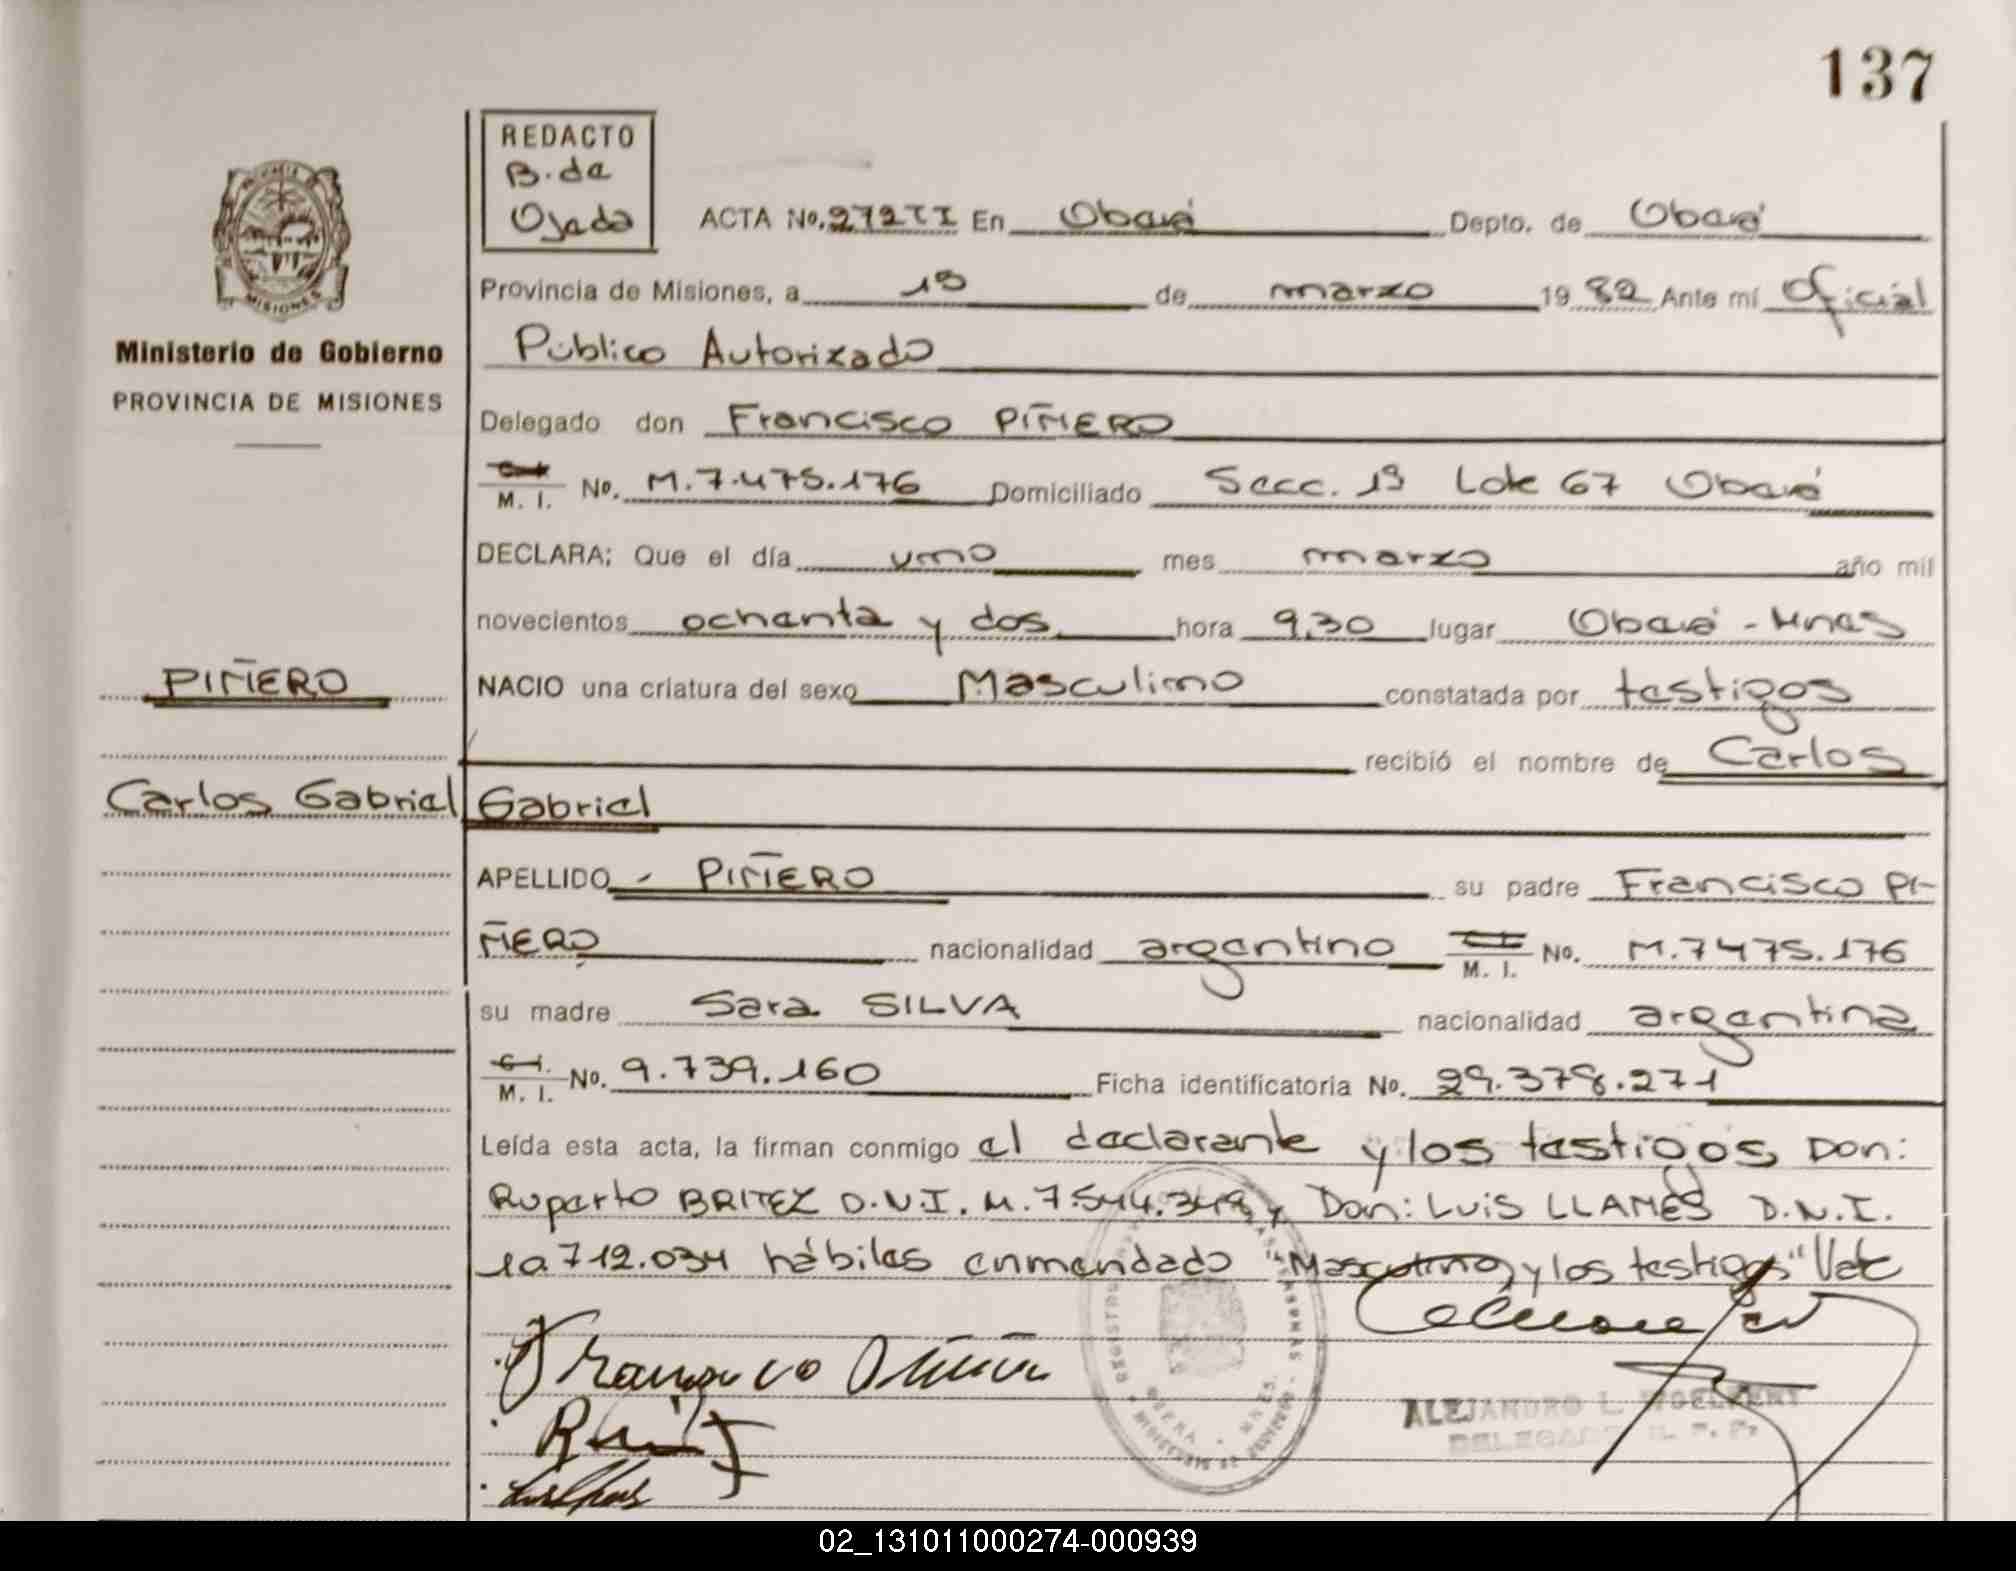 137
REDACTO
B. de
Ojeda
ACTA No. 272 TI En Oberá Depto. de Oberá
Provincia de Misiones, a 19 de marzo 1982 Ante mí Oficial
Público Autorizado
Ministerio de Gobierno
PROVINCIA DE MISIONES
MISIONES
Delegado don Francisco PIÑERO
C.I. M. I. No. M.7.475.176 Domiciliado Secc. 19 Lote 67 Oberá
DECLARA; Que el día uno mes marzo año mil
novecientos ochenta y dos hora 9,30 lugar Oberá - Mnes
PIÑERO
NACIO una criatura del sexo Masculino constatada por testigos
recibió el nombre de Carlos
Carlos Gabriel
Gabriel
APELLIDO - PIÑERO su padre Francisco PI-
ÑERO nacionalidad argentino M. I. No. M.7475.176
su madre Sara SILVA nacionalidad argentina
C.I. M. I. No. 9.739.160 Ficha identificatoria No. 29.378.271
Leída esta acta, la firman conmigo el declarante y los testigos Don:
Ruperto BRITEZ D.N.I. M.7.544.348 y Don: LUIS LLAMES D.N.I.
10.712.034 hábiles enmendado "Masculino y los testigos" Vale
Francisco Piñero
ALEJANDRO L. WOELFERT
DELEGADO R. P. P.
02_131011000274-000939